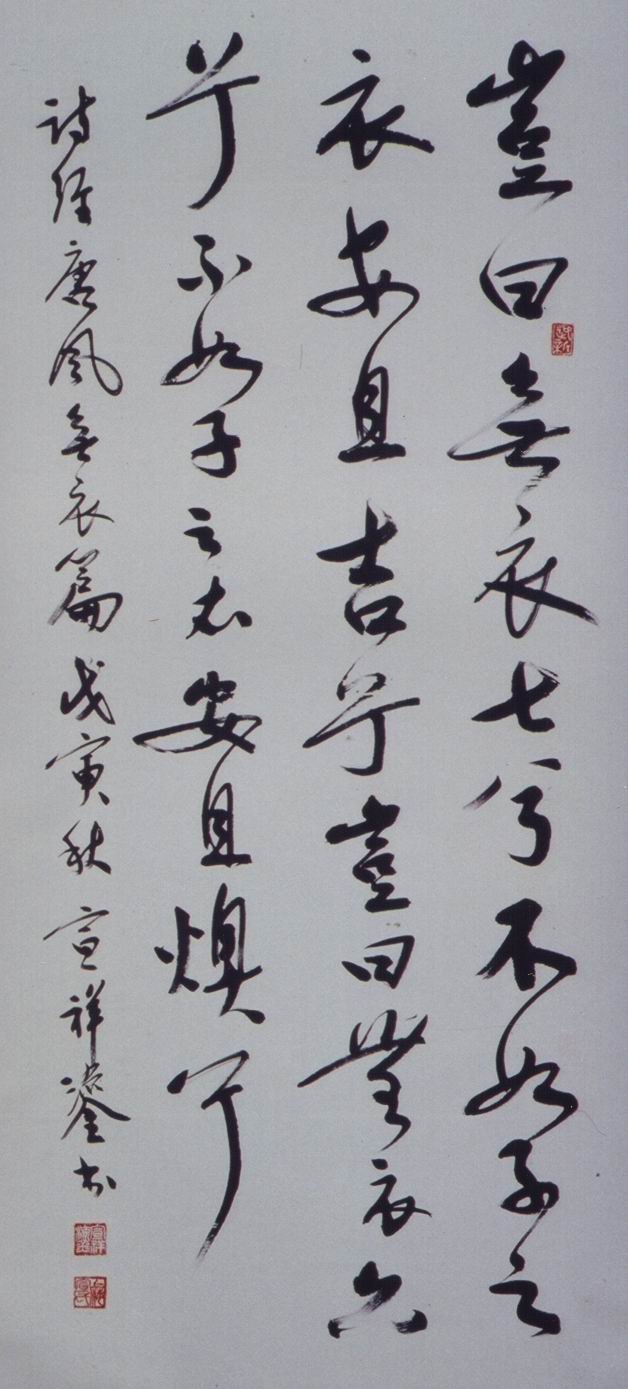 豈曰無衣七兮不如子之
衣安且吉兮豈曰無衣六
兮不如子之衣安且燠兮
詩經唐風無衣篇戊寅秋宣祥鎏书